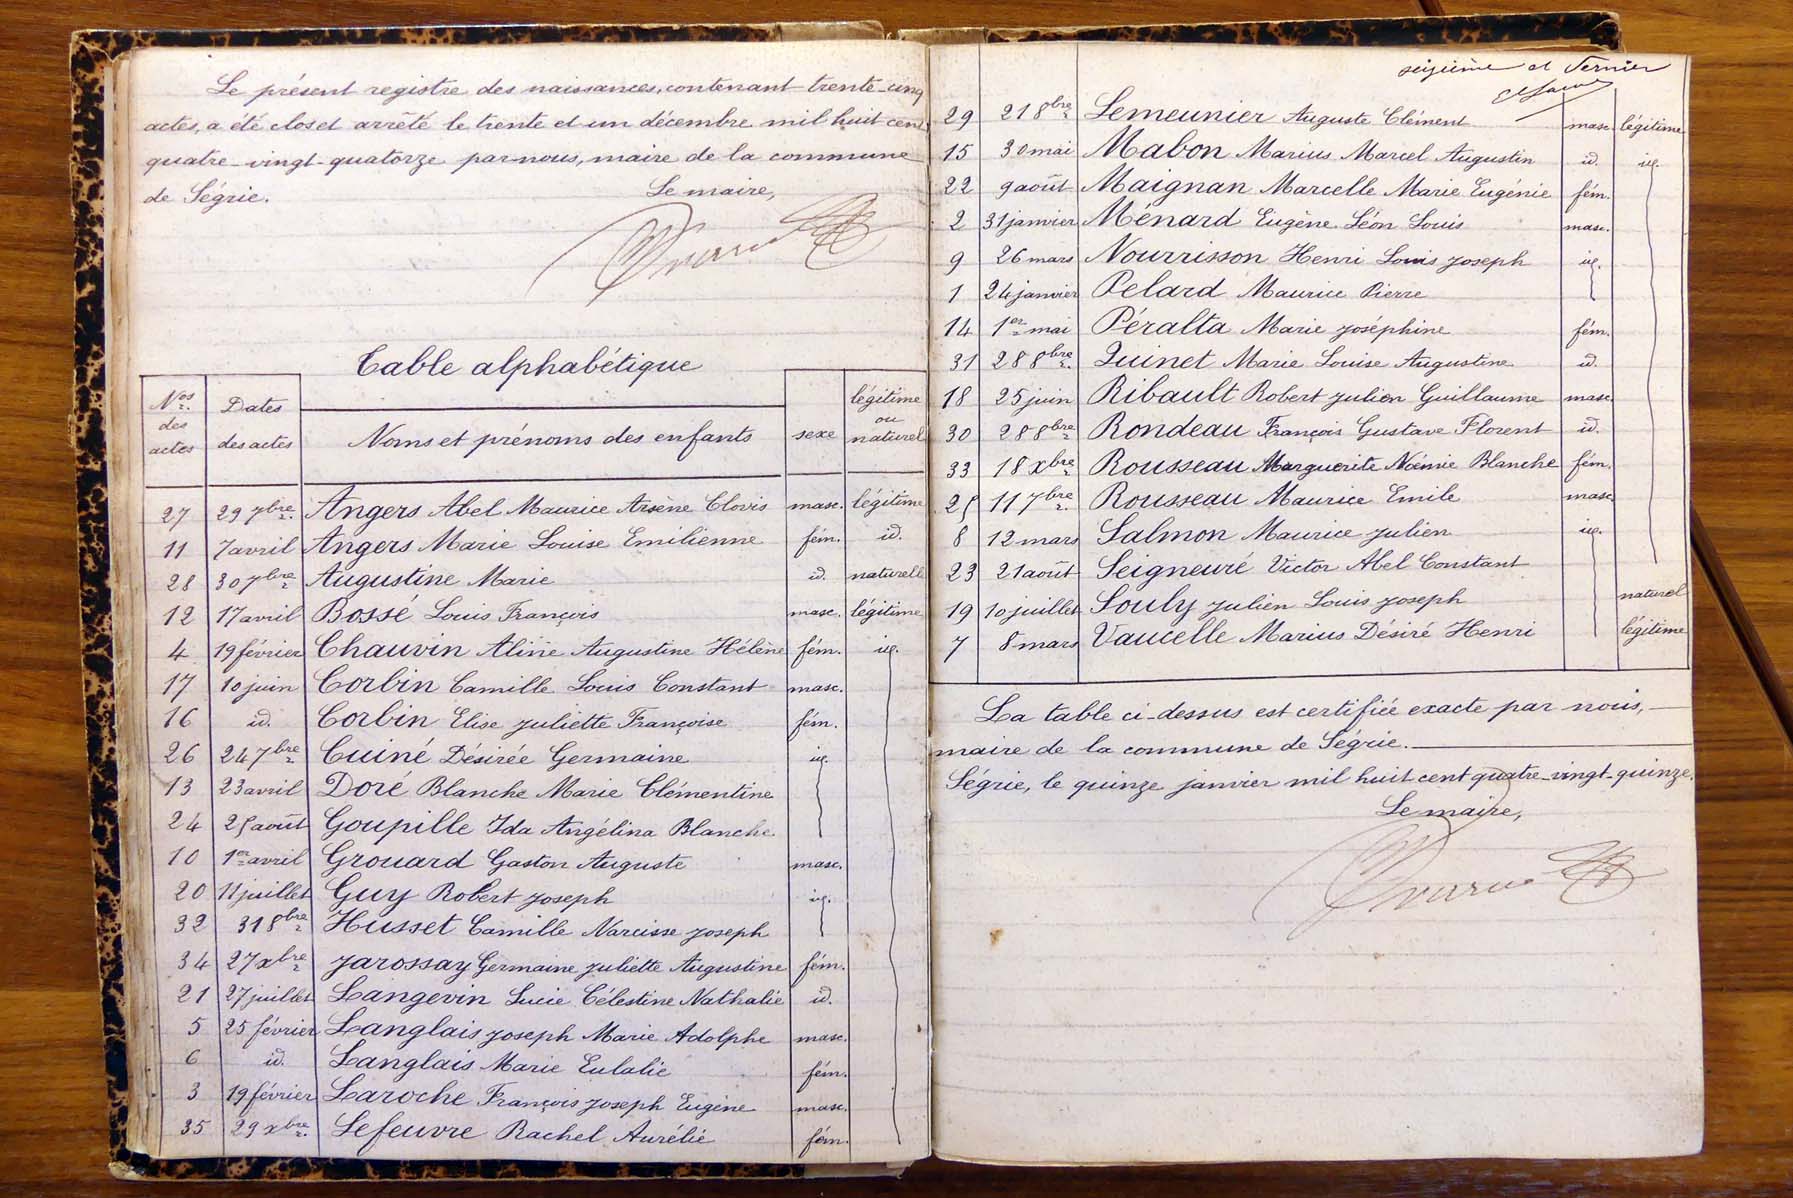 Le présent registre des naissances, contenant trente-cinq
actes, a été clos et arrêté le trente et un décembre mil huit cent
quatre-vingt-quatorze par nous, maire de la commune
de Ségrie. Le maire,
Table alphabétique
Nos des actes | Dates des actes | Noms et prénoms des enfants | sexe | légitime ou naturel
27 29 7bre. Angers Abel Maurice Arsène Clovis masc. légitime
11 7 avril Angers Marie Louise Emilienne fém. id.
28 30 7bre Augustine Marie id. naturelle
12 17 avril Bossé Louis François masc. légitime
4 19 février Chauvin Aline Augustine Hélène fém. id.
17 10 juin Corbin Camille Louis Constant masc.
16 id. Corbin Elise Juliette Françoise fém.
26 24 7bre Cuiné Désirée Germaine id.
13 23 avril Doré Blanche Marie Clémentine
24 25 août Goupille Ida Angélina Blanche
10 1er avril Grouard Gaston Auguste masc.
20 11 juillet Guy Robert Joseph id.
32 31 8bre Husset Camille Narcisse Joseph
34 27 xbre Jarossay Germaine Juliette Augustine fém.
21 27 juillet Langevin Lucie Célestine Nathalie id.
5 25 février Langlais Joseph Marie Adolphe masc.
6 id. Langlais Marie Eulalie fém.
3 19 février Laroche François Joseph Eugène masc.
35 29 xbre. Lefeuvre Rachel Aurélie fém.
seizième et dernier
29 21 8bre Lemeunier Auguste Clément masc légitime
15 30 mai Mabon Marius Marcel Augustin id. id.
22 9 août Maignan Marcelle Marie Eugénie fém.
2 31 janvier Ménard Eugène Léon Louis masc.
9 26 mars Nourrisson Henri Louis Joseph id.
1 24 janvier Pelard Maurice Pierre
14 1er mai Péralta Marie Joséphine fém.
31 28 8bre. Quinet Marie Louise Augustine id.
18 25 juin Ribault Robert Julien Guillaume masc
30 28 8bre Rondeau François Gustave Florent id.
33 18 xbre Rousseau Marguerite Noémie Blanche fém.
25 11 7bre Rousseau Maurice Emile masc
8 12 mars Salmon Maurice Julien id.
23 21 août Seigneuré Victor Abel Constant
19 10 juillet Souly Julien Louis Joseph naturel
7 8 mars Vaucelle Marius Désiré Henri légitime
La table ci-dessus est certifiée exacte par nous,
maire de la commune de Ségrie.
Ségrie, le quinze janvier mil huit cent quatre-vingt-quinze.
Le maire,